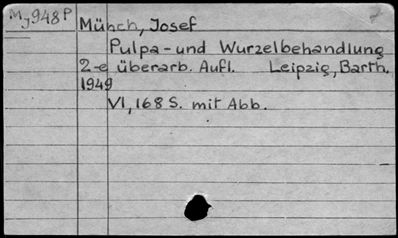 My948P
Münch, Josef
Pulpa- und Wurzelbehandlung
2-e überarb. Aufl. Leipzig, Barth.
1949
VI, 168 S. mit Abb.